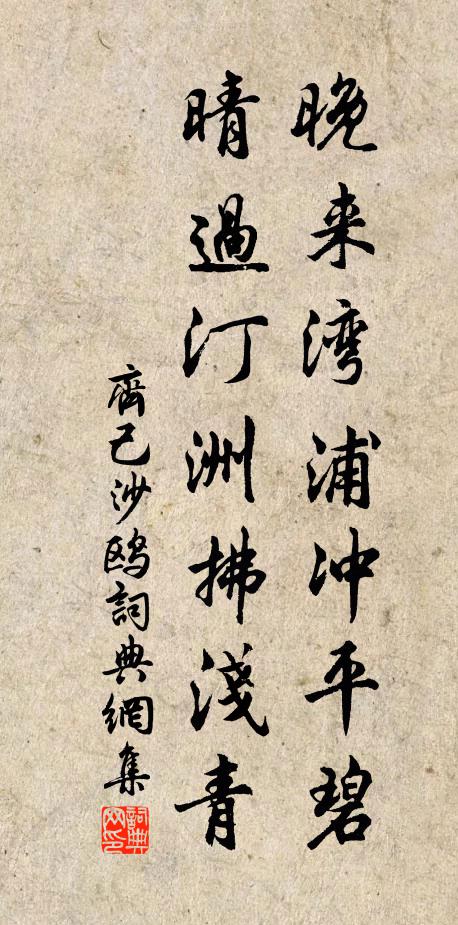 晚来湾浦冲平碧
晴過汀洲拂淺青
齊己沙鸥詞典網集
詞典網印